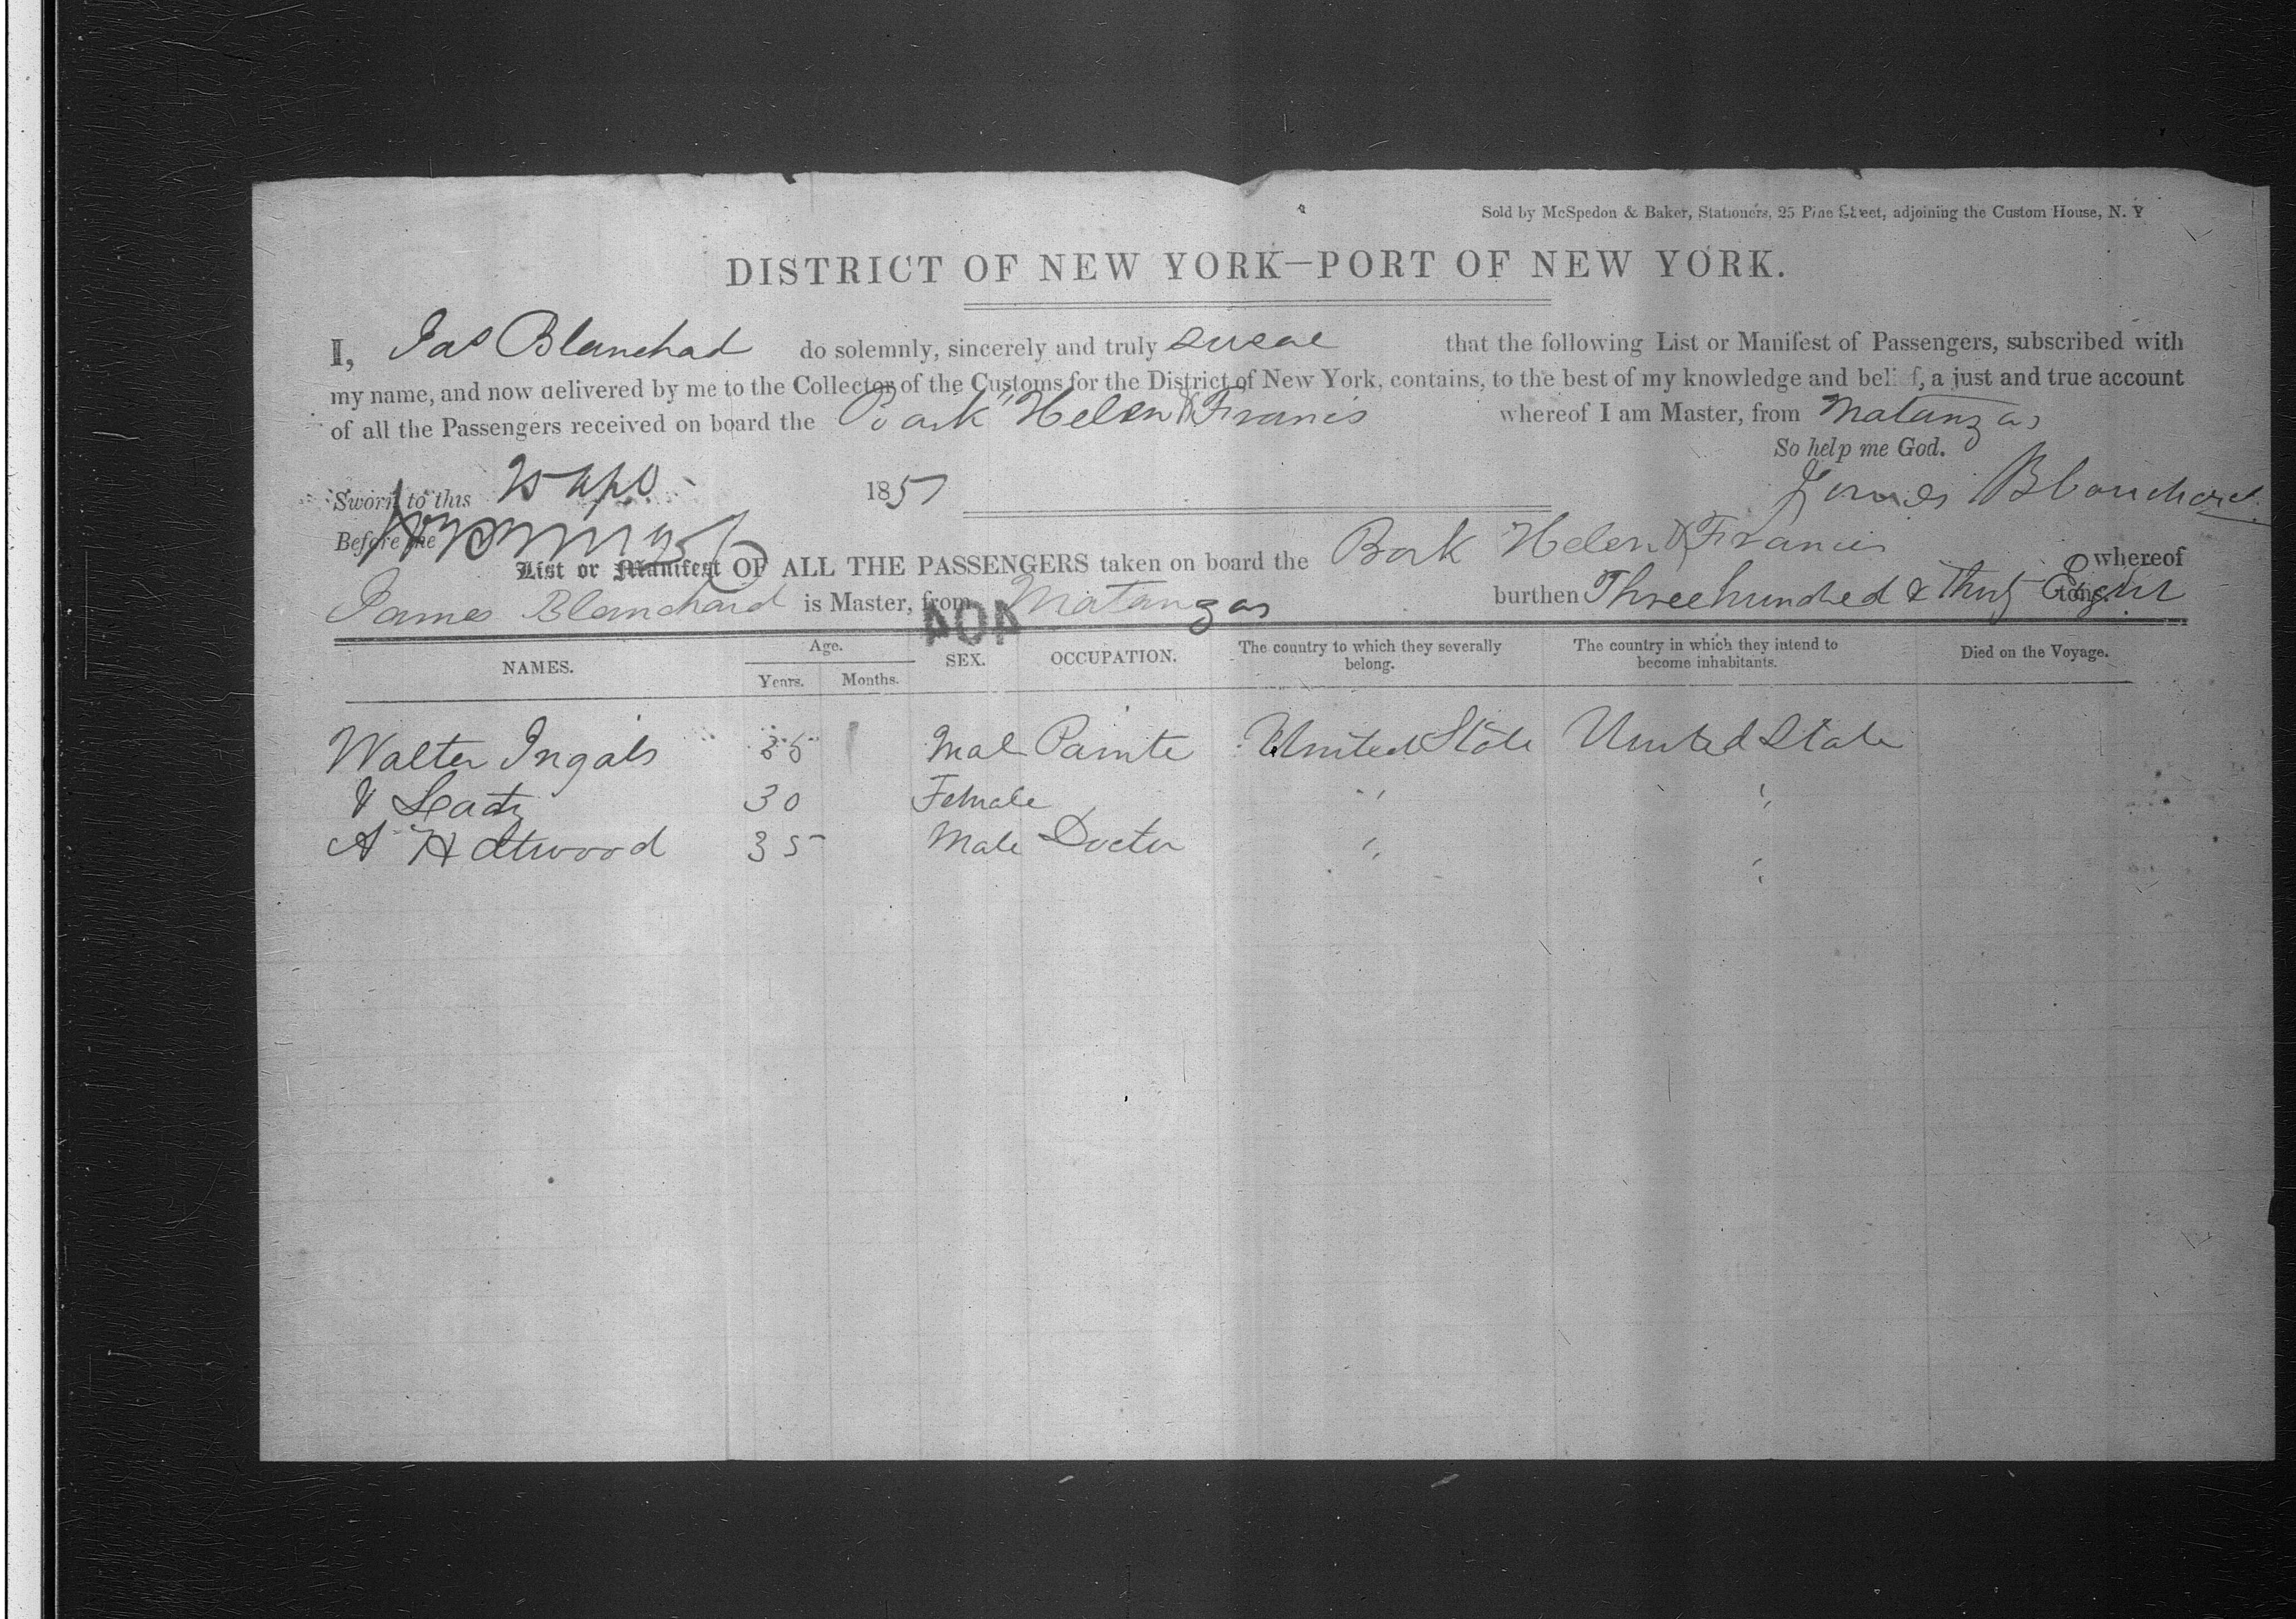 Sold by McSpedon & Baker, Stationers, 25 Pine Street, adjoining the Custom House, N. Y
DISTRICT OF NEW YORK—PORT OF NEW YORK.
I, Jas Blanchad do solemnly, sincerely and truly swear that the following List or Manifest of Passengers, subscribed with
my name, and now delivered by me to the Collector of the Customs for the District of New York, contains, to the best of my knowledge and belief, a just and true account
of all the Passengers received on board the Bark Helen & Francis whereof I am Master, from Matanzas
So help me God.
Sworn to this 25 Apl 1851 James Blanchard
Before me
List or Manifest OF ALL THE PASSENGERS taken on board the Bark Helen & Francis whereof
James Blanchard is Master, from Matanzas burthen Three hundred & Thirty Eight tons.
404
NAMES. Age. Years. Months. SEX. OCCUPATION. The country to which they severally belong. The country in which they intend to become inhabitants. Died on the Voyage.
Walter Ingals Mal Painte United State United State
& Lady 30 Female " "
A H Atwood 35 Male Doctor " "